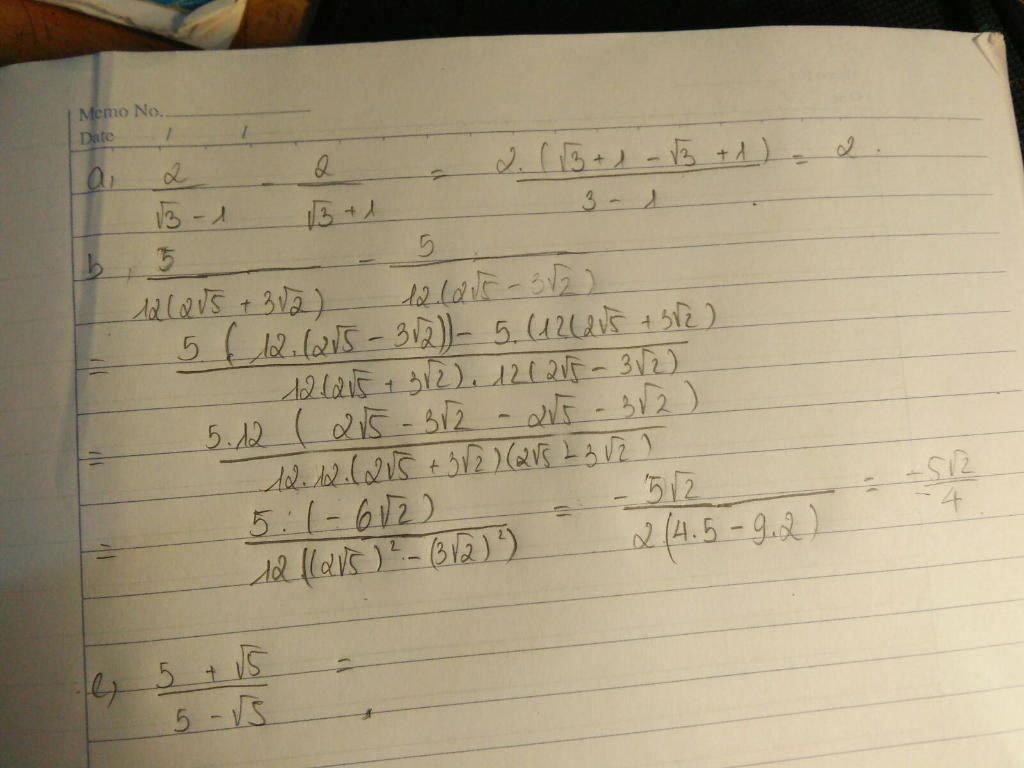 Memo No.
Date / /
a, 2/(√3 - 1) - 2/(√3 + 1) = 2.(√3 + 1 - √3 + 1)/(3 - 1) = 2.
b, 5/(12(2√5 + 3√2)) - 5/(12(2√5 - 3√2))
= (5(12.(2√5 - 3√2)) - 5.(12(2√5 + 3√2))/(12(2√5 + 3√2).12(2√5 - 3√2))
= 5.12(2√5 - 3√2 - 2√5 - 3√2)/(12.12.(2√5 + 3√2)(2√5 - 3√2))
= 5.(-6√2)/(12((2√5)² - (3√2)²)) = -5√2/(2(4.5 - 9.2)) = -5√2/4
c, (5 + √5)/(5 - √5) =